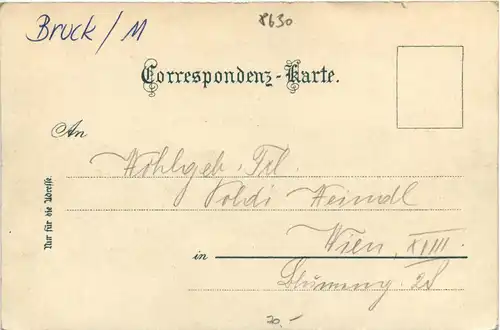 Bruck / M
8630
Correspondenz-Karte.
An
Wohlgeb. Frl.
Poldi Heindl
Nur für die Adresse.
in Wien, XVIII.
20.-